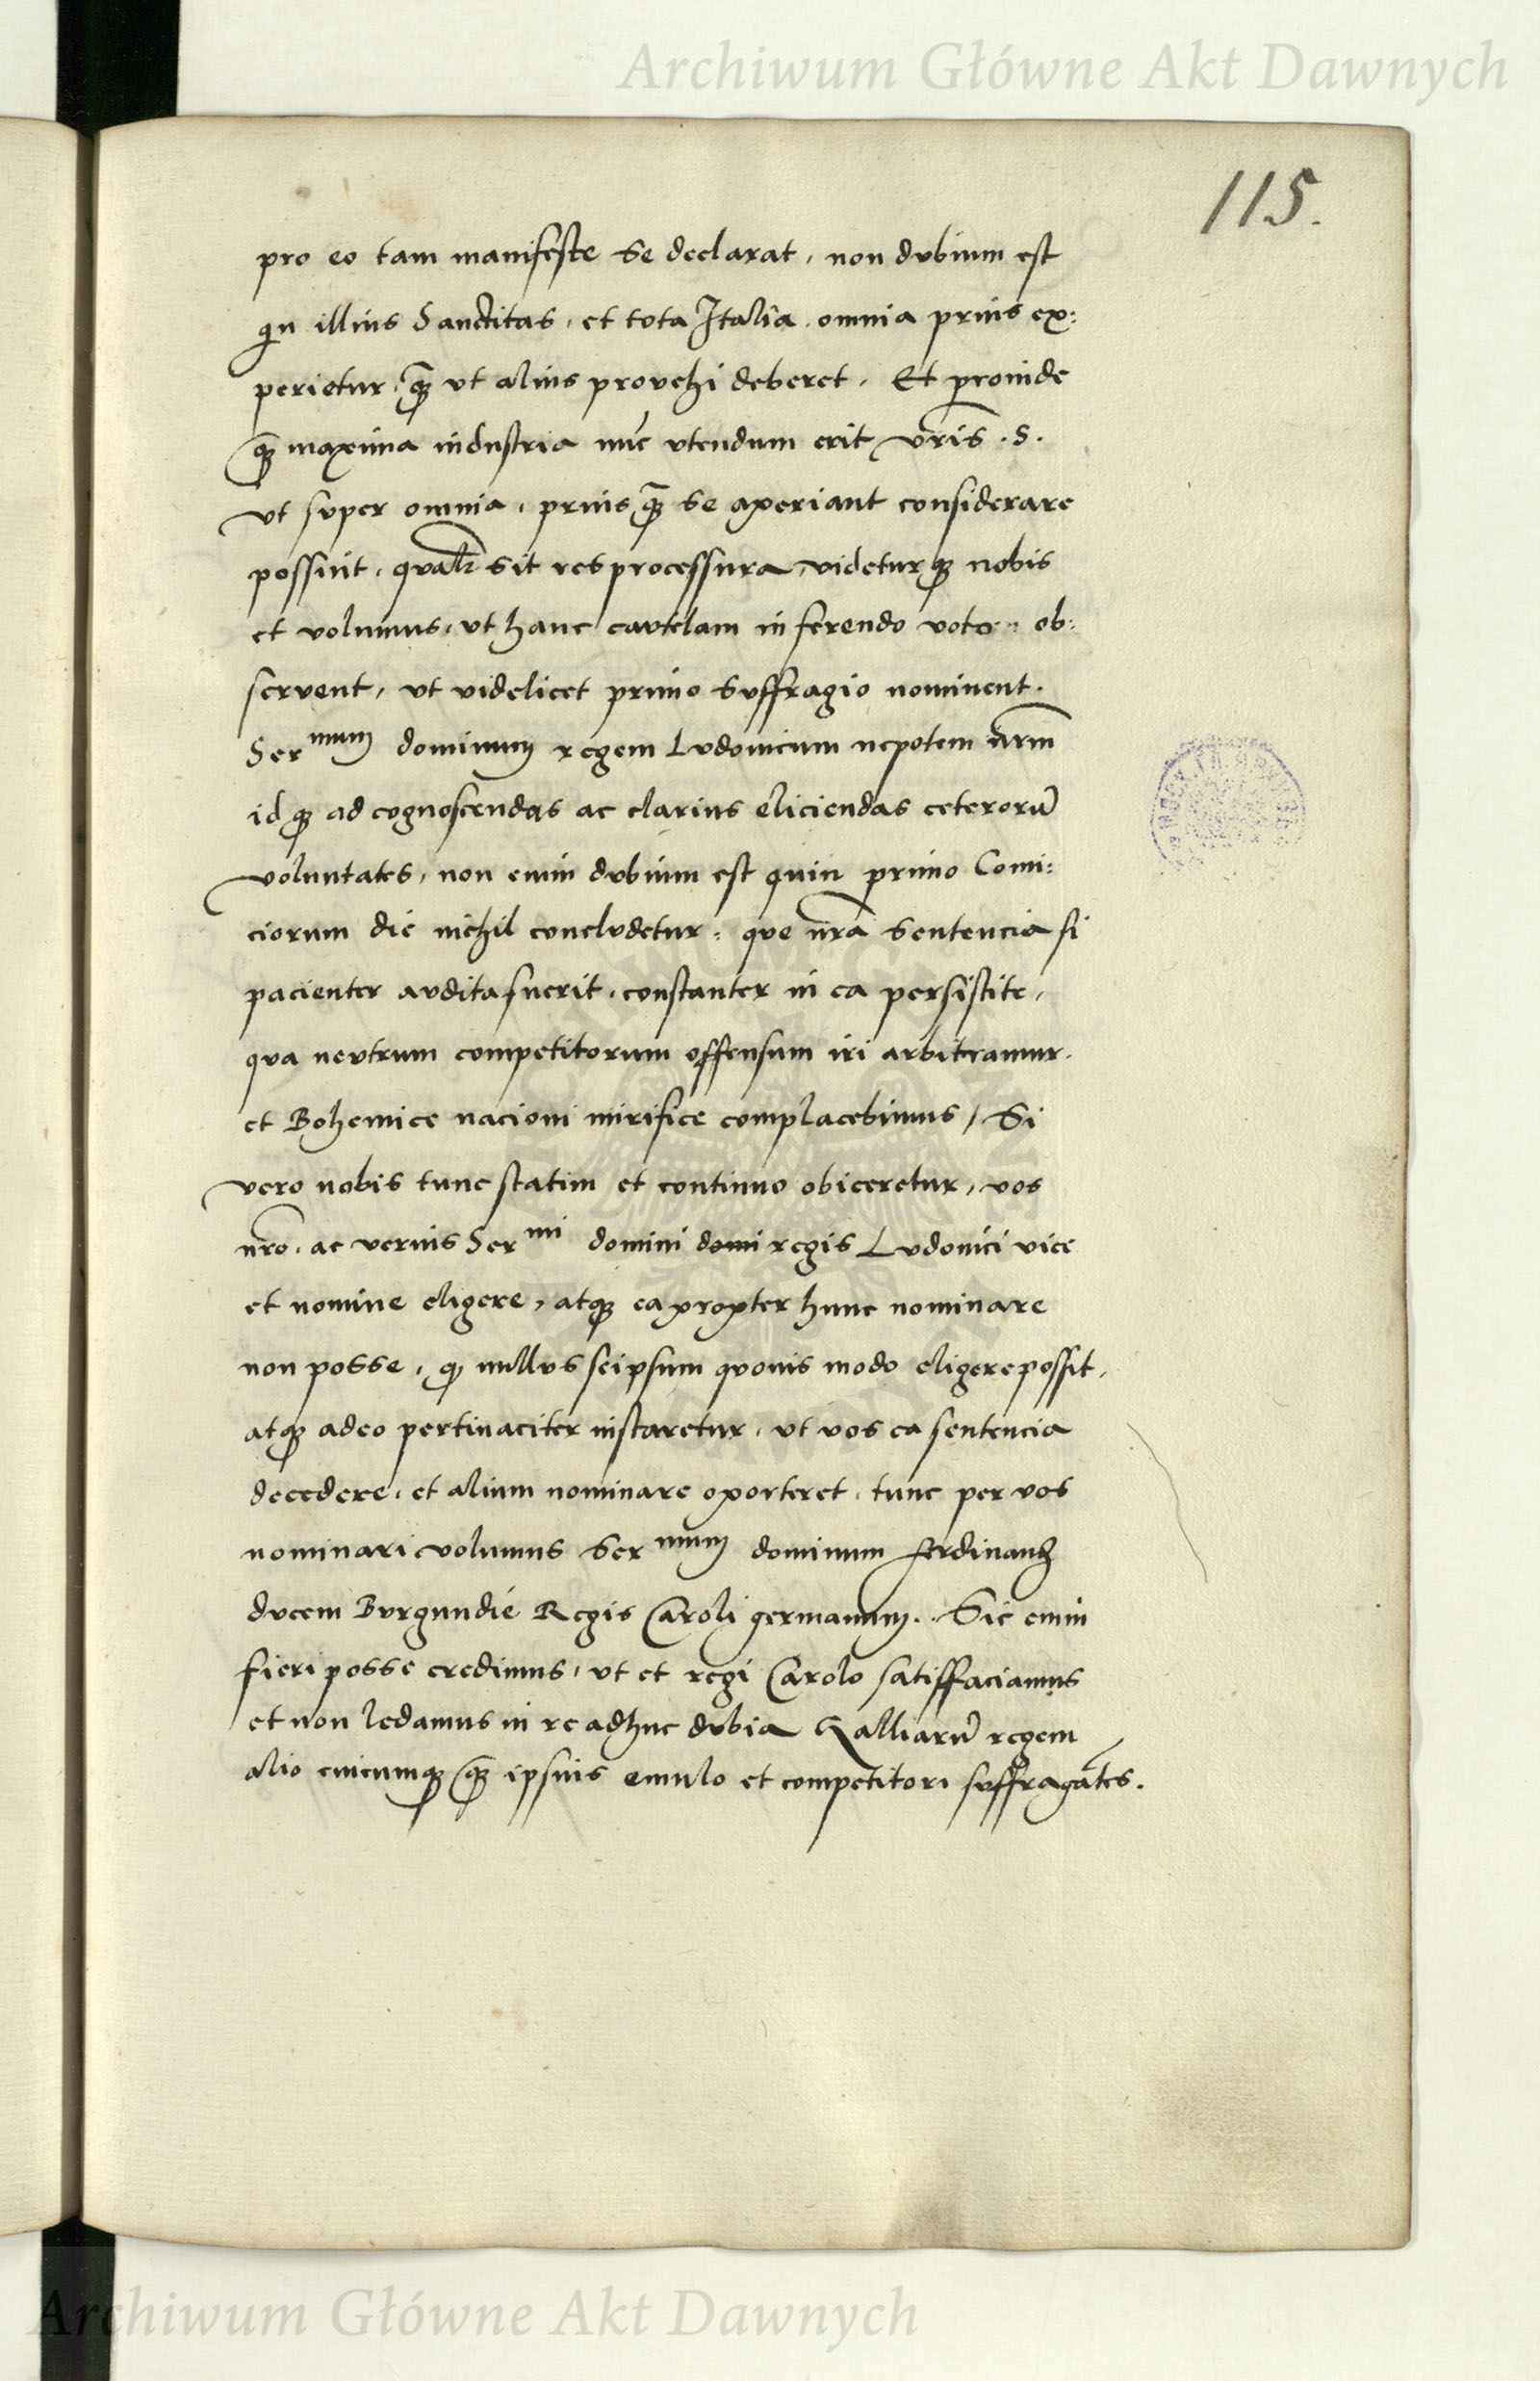 Archiwum Główne Akt Dawnych
115.
pro eo tam manifeste se declarat, non dubium est
qn illius Sanctitas, et tota Italia, omnia prius ex:
perietur, q̃ȝ vt alius provehi deberet, Et proinde
q̃ȝ maxima industria nũc vtendum erit vr̃is .S.
vt super omnia, prius q̃ȝ se aperiant considerare
possint, qualr̃ sit res processura, videturqȝ nobis
et volumus, vt hanc cautelam in ferendo voto ob:
servent, vt videlicet primo suffragio nominent.
Ser mum dominum regem Ludovicum nepotem nr̃m
idqȝ ad cognoscendas ac clarius eliciendas ceterorũ
voluntates, non enim dubium est quin primo Comi:
ciorum die nichil concludetur, que nr̃a sentencia si
pacienter audita fuerit, constanter in ea persistite,
qua neutrum competitorum offensum iri arbitramur.
et Bohemice nacioni mirifice complacebimus, Si
vero nobis tunc statim et continuo obiceretur, vos
nr̃o, ac verius Ser mi domini domi regis Ludovici vice
et nomine eligere, atqȝ ea propter hunc nominare
non posse, qȝ nullus seipsum quovis modo eligere possit,
atqȝ adeo pertinaciter instaretur, vt vos ea sentencia
decedere, et alium nominare oporteret, tunc per vos
nominari volumus Ser mum dominum ferdinandȝ
ducem Burgundie Regis Caroli germanum. Sic enim
fieri posse credimus, vt et regi Carolo satisfaciamus
et non ledamus in re adhuc dubia Galliarũ regem
alio cuicumqȝ q̃ȝ ipsius emulo et competitori suffragãtes.
Archiwum Główne Akt Dawnych